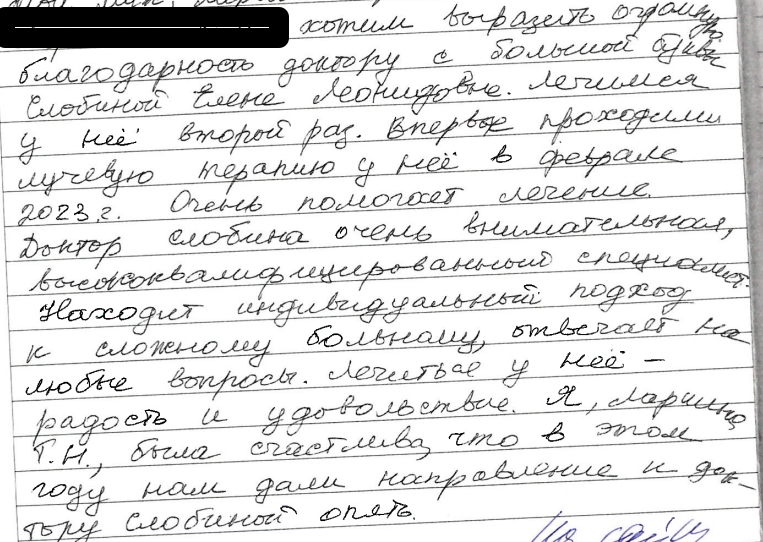 хотим выразить огромную
благодарность доктору с большой буквы
Слобиной Елене Леонидовне. Лечимся
у неё второй раз. Впервые проходили
лучевую терапию у неё в феврале
2023 г. Очень помогает лечение.
Доктор Слобина очень внимательная,
высококвалифицированный специалист.
Находит индивидуальный подход
к сложному больному, отвечает на
любые вопросы. Лечиться у неё –
радость и удовольствие. Я, Ларшина
Т.Н., была счастлива, что в этом
году нам дали направление к док-
тору Слобиной опять.